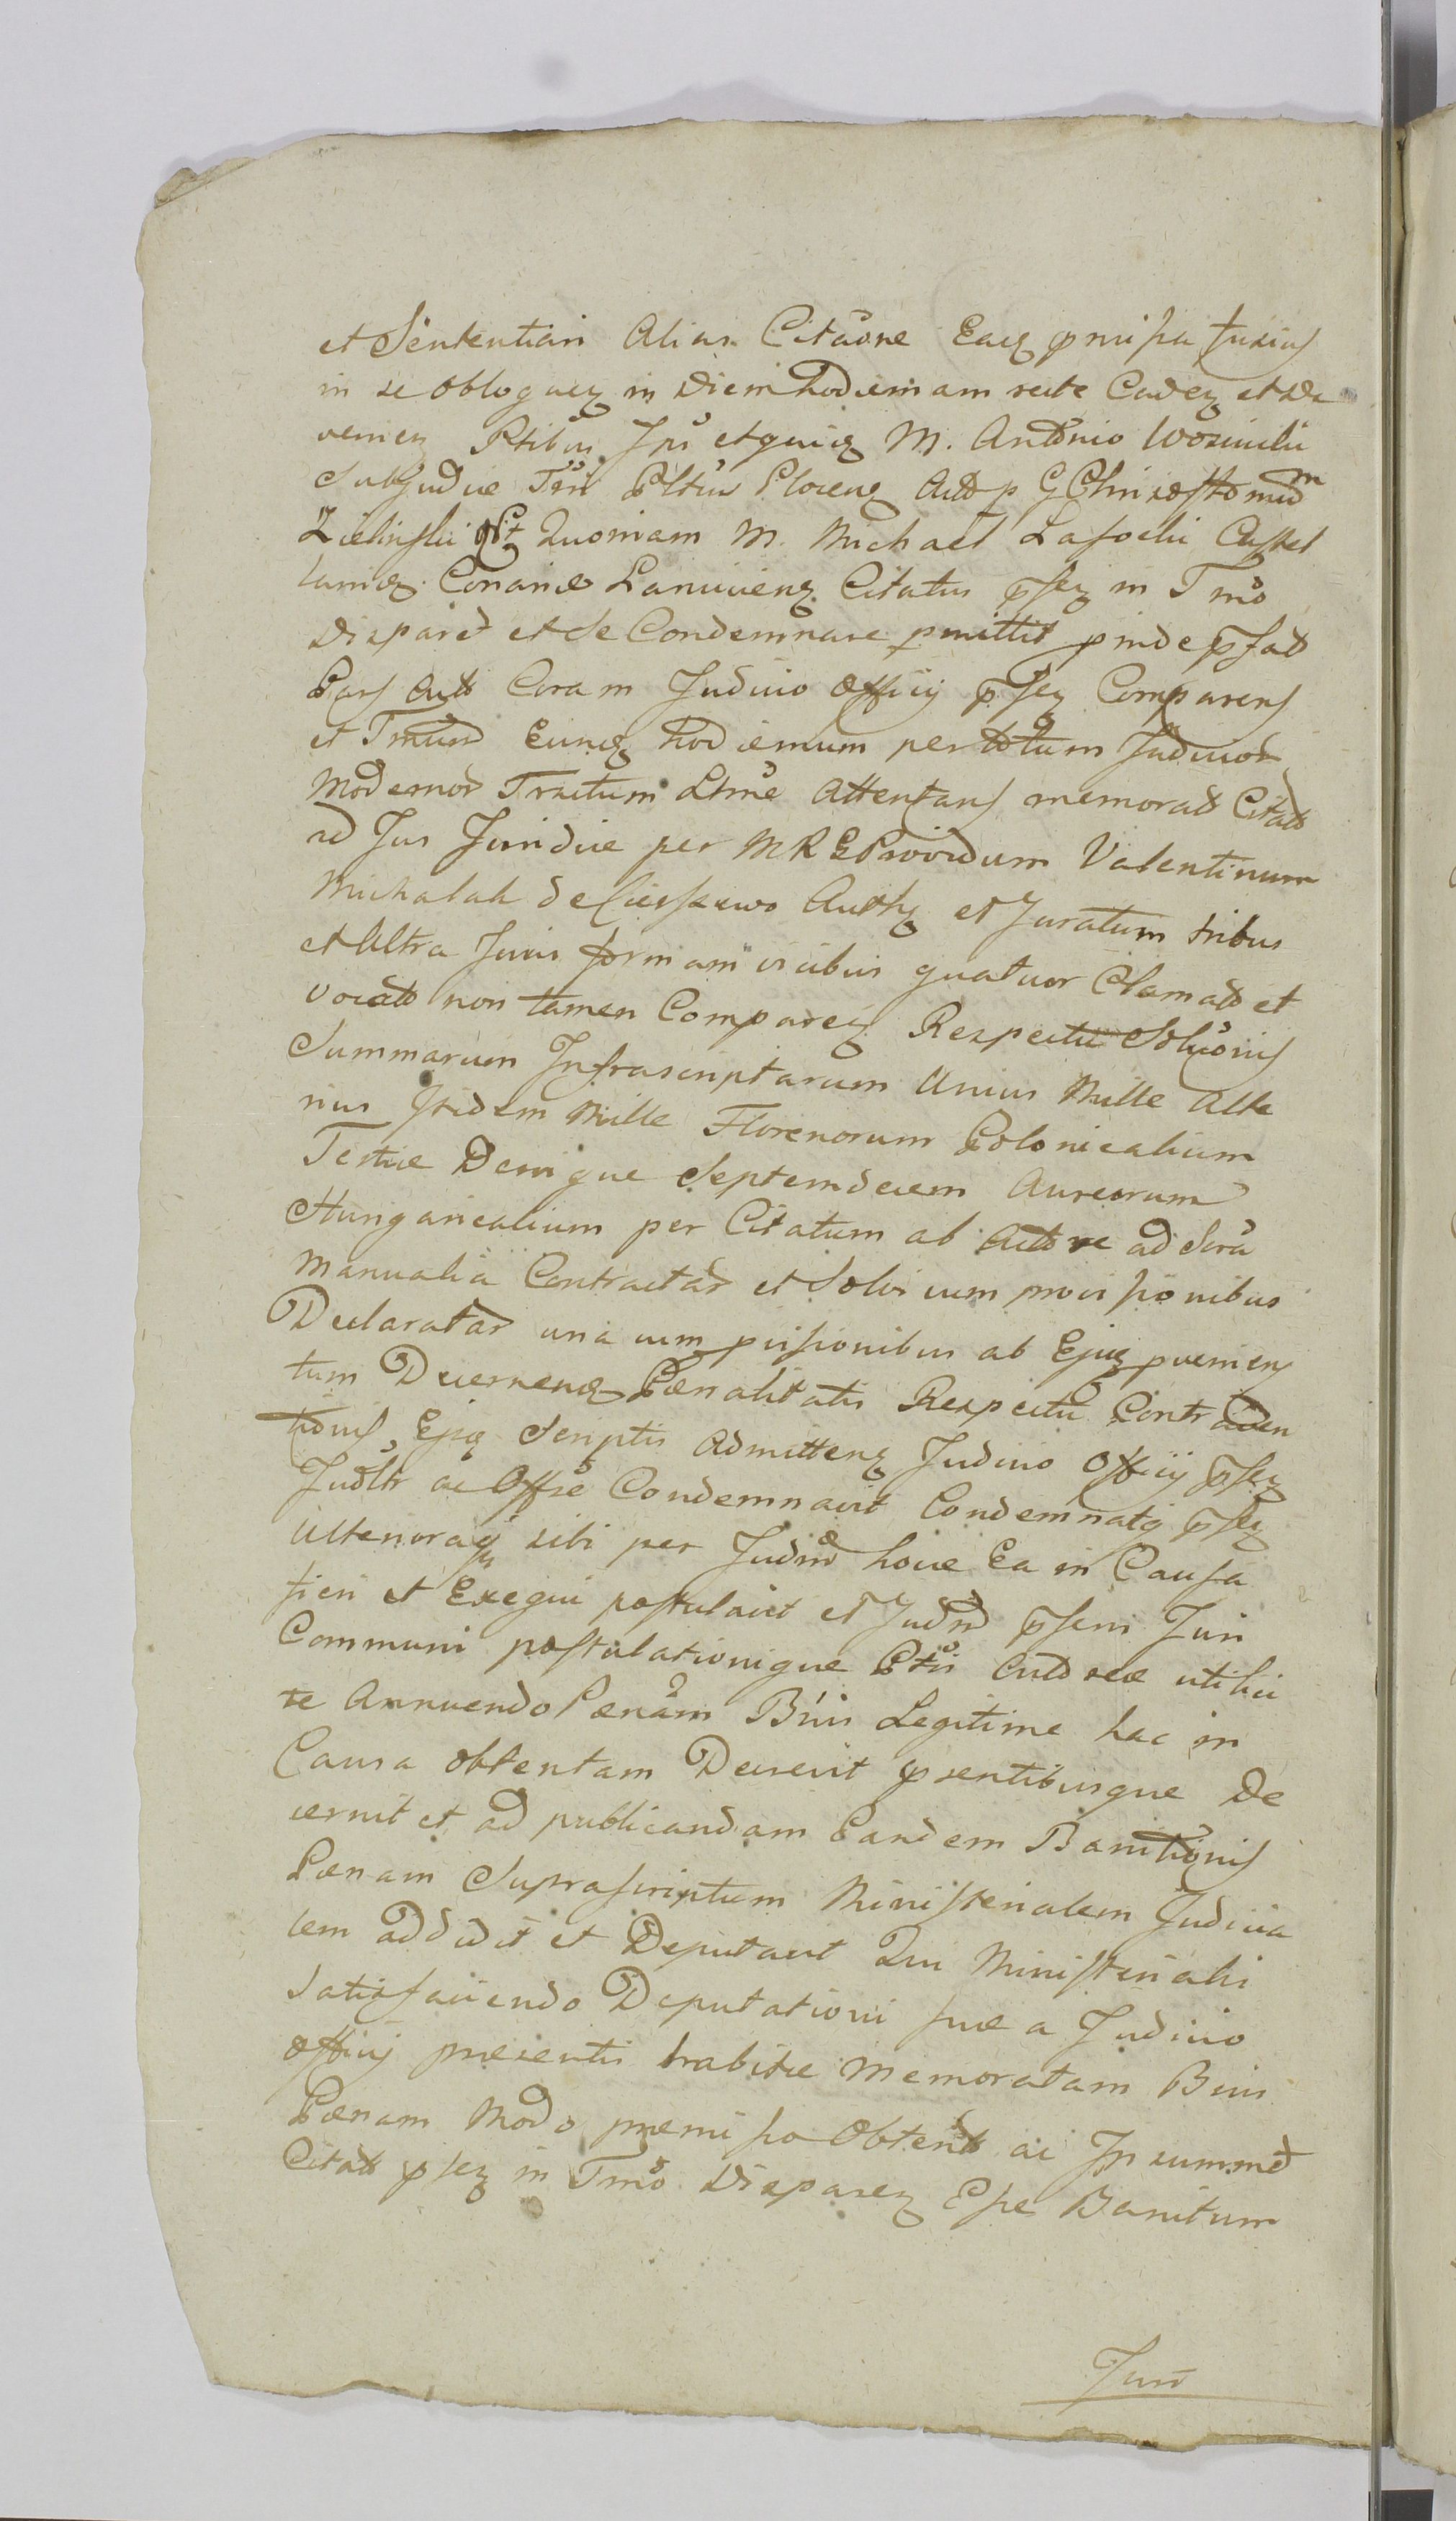 et Sententiari Alias Citaone Eaq pmissa fusius
in se obloquen in Diem hodiernam recte Caden et De
venien Ptibus Ips etquiq M. Antonio
Subjudice Trri Pltus Plocens Actor p G Chrisostomum
Zielinski Quoniam M. Michael Lasocki Castel
lanid Conariæ Lanciciens Citatus psen in Tmo
Disparet et se Condemnare pmittit pinde psat
Pars Act Coram Judicio Officij psen Comparens
et Tmum Eunq hodiernum per totum Judicior
Modernor Tractum Ltme Attentans memorat Citat
ad Jus Juridice per M R G Providum Valentinum
Michalak de Authen et Juratum tribus
et Ultra Juris formam vicibus quatuor Clamat et
vocat non tamen Comparen Respectu Soluonis
Summarum Infrascriptarum Unius Mille Alte
rius Itidem Mille Florenorum Polonicalium
Tertiæ Denique Septemdecem Aureorum
Hungaricalium per Citatum ab Actore ad Scra
Manualia Contractar et Solvi cum provisionibus
Declaratar una cum pvisionibus ab Ejusq pvenien
tum Decernenq Pænalitatis Respectu Contraven
tionis Ejsq Scriptis Admittenq Judicio Officij psen
Judltr ac Offse Condemnavit Condemnatq psen
Ulterioraq sibi per Judm hocce Ea in Causa
fieri et Exequi postulavit et Judm psens Juri
Communi postulationique Ptis Actoreæ utilici
te Annuendo Pænam Bnis Legitime hac in
Causa obtentam Decrevit psentibusque De
cernit et ad publicandam Eandem Banitionis
Pænam Suprascriptum Ministerialem Judicia
lem addidit et Deputavit Qui Ministerialis
Satisfaciendo Deputationi suæ a Judicio
Officij præsentis habitæ Memoratam Bnis
Pænam Modo præmisso Obtent ac Ipsummet
Citat psen in Tmo Disparen Esse Banitum